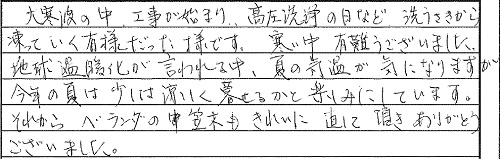 大寒波の中 工事が始まり、高圧洗浄の日など 洗うさきから
凍っていく有様だった様です。寒い中 有難うございました。
地球温暖化が言われる中、夏の気温が気になりますが
今年の夏は少しは涼しく暮せるかと楽しみにしています。
それから ベランダの中笠木もきれいに直して頂きありがとう
ございました。